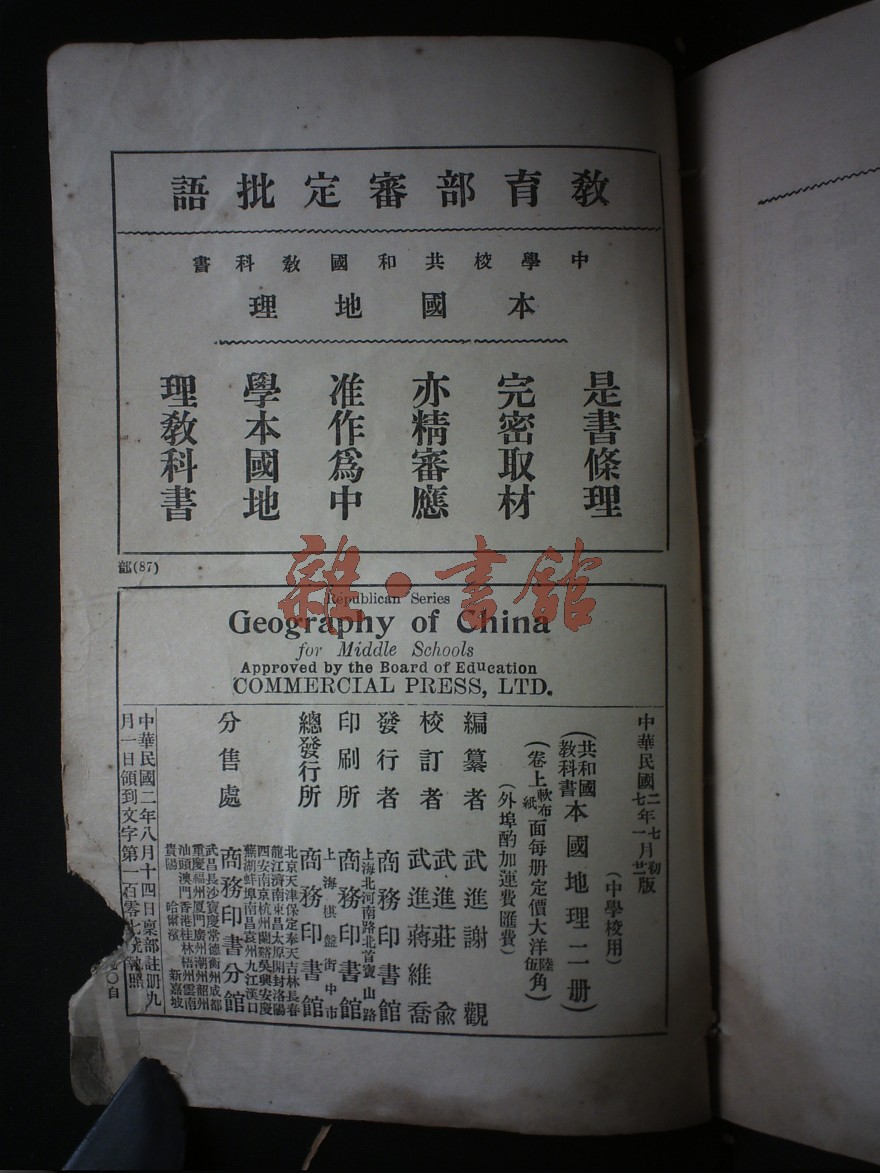 教育部審定批語
中學校共和國教科書
本國地理
是書條理
完密取材
亦精審應
准作爲中
學本國地
理教科書
部(87)
雜·書館
Republican Series
Geography of China
for Middle Schools
Approved by the Board of Education
COMMERCIAL PRESS, LTD.
中華民國二年七月初版
七年一月廿二版
(中學校用)
(共和國教科書本國地理二册)
(卷上軟布紙面每册定價大洋陸伍角)
(外埠酌加運費匯費)
編纂者 武進謝觀
校訂者 武進莊俞
武進蔣維喬
發行者 商務印書館
印刷所 上海北河南路北首寶山路
商務印書館
總發行所 上海棋盤街中市
商務印書館
分售處 北京天津保定奉天吉林長春
龍江濟南東昌太原開封洛陽
西安南京杭州蘭谿吳興安慶
蕪湖蚌埠南昌袁州九江漢口
商務印書分館
武昌長沙寶慶常德衡州成都
重慶福州厦門廣州潮州韶州
汕頭澳門香港桂林梧州雲南
貴陽 哈爾濱 新嘉坡
中華民國二年八月十四日禀部註册九
月一日領到文字第一百零七號執照
〇自